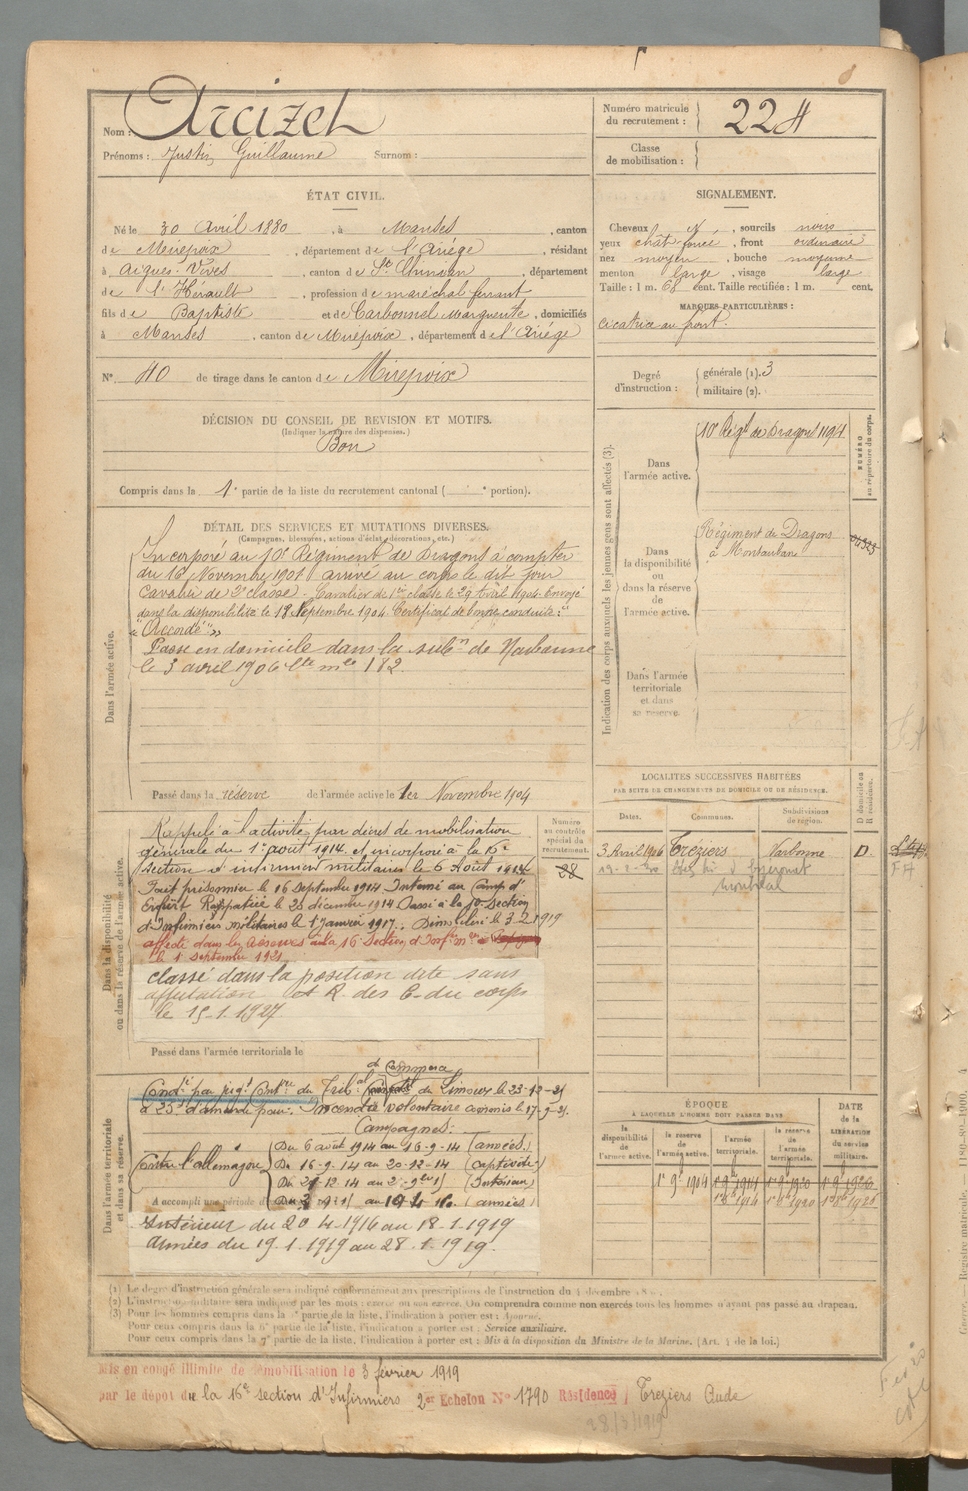 Nom : Arcizet
Prénoms : Justin Guillaume Surnom :
Numéro matricule du recrutement : 224
Classe de mobilisation :
ÉTAT CIVIL.
Né le 30 Avril 1880, à Manses, canton
de Mirepoix, département de l'Ariége, résidant
à Aigues-Vives, canton de St Chinian, département
de l'Hérault, profession de maréchal ferrant
fils de Baptiste et de Carbonnel Marguerite, domiciliés
à Manses, canton de Mirepoix, département de l'Ariége
N° 40 de tirage dans le canton de Mirepoix
SIGNALEMENT.
Cheveux N, sourcils noirs
yeux chât-foncé, front ordinaire
nez moyen, bouche moyenne
menton large, visage large
Taille : 1 m. 68 cent. Taille rectifiée : 1 m. cent.
MARQUES PARTICULIÈRES :
cicatrice au front.
Degré d'instruction : générale (1). 3
militaire (2).
DÉCISION DU CONSEIL DE REVISION ET MOTIFS.
(Indiquer la nature des dispenses.)
Bon
Compris dans la 1e partie de la liste du recrutement cantonal ( e portion).
DÉTAIL DES SERVICES ET MUTATIONS DIVERSES.
(Campagnes, blessures, actions d'éclat, décorations, etc.)
Dans l'armée active.
Incorporé au 10e Régiment de Dragons à compter
du 16 Novembre 1901 arrivé au corps le dit jour
Cavalier de 2e classe. Cavalier de 1re classe le 29 Avril 1904. Envoyé
dans la disponibilité le 18 Septembre 1904. Certificat de bonne conduite :
"Accordé"
Passé en domicile dans la subon de Narbonne
le 3 avril 1906 Lte mle 182.
Passé dans la réserve de l'armée active le 1er Novembre 1904
Indication des corps auxquels les jeunes gens sont affectés (3).
Dans l'armée active.
10e Regt de Dragons 1194
NUMÉRO au répertoire du corps.
Dans la disponibilité ou dans la réserve de l'armée active.
Régiment de Dragons
à Montauban
Dans l'armée territoriale et dans sa réserve.
LOCALITÉS SUCCESSIVES HABITÉES
PAR SUITE DE CHANGEMENTS DE DOMICILE OU DE RÉSIDENCE.
Dates. Communes. Subdivisions de région. D domicile ou R résidence.
3 Avril 1906 Tréziers Narbonne D.
Montréal
Dans la disponibilité ou dans la réserve de l'armée active.
Numéro au contrôle spécial du recrutement.
28
Rappelé à l'activité par décret de mobilisation
générale du 1er août 1914 et incorporé à la 16e
section d'infirmiers militaires le 6 Août 1914
Fait prisonnier le 16 septembre 1914 Interné au Camp d'
Erfurt Rapatrié le 20 décembre 1914 Passé à la 10e Section
d'Infirmiers militaires le 1 Janvier 1917. Démobilisé le 3-2-1919
affecté dans les réserves à la 16 Section d'Infirs
le 1 septembre 1921
classé dans la position dite sans
affectation et R. des C. du corps
le 15-1-1927
Passé dans l'armée territoriale le
Dans l'armée territoriale et dans sa réserve.
de Limoux le 23-12-21
à 25f d'amende pour Incendie volontaire commis le 17-9-21.
Campagnes :
Contre l'allemagne
Du 6 août 1914 au 16-9-14 (armées)
Du 16-9-14 au 20-12-14 (captivité)
A accompli une période d'
Intérieur du 20 4-1916 au 18-1-1919
Armées du 19.1.1919 au 28.1.1919.
ÉPOQUE
À LAQUELLE L'HOMME DOIT PASSER DANS
la disponibilité de l'armée active. la réserve de l'armée active. l'armée territoriale. la réserve de l'armée territoriale.
DATE de la LIBÉRATION du service militaire.
(1) Le degré d'instruction générale sera indiqué conformément aux prescriptions de l'instruction du 4 décembre
(2) L'instruction militaire sera indiquée par les mots : exercé ou non exercé. On comprendra comme non exercés tous les hommes n'ayant pas passé au drapeau.
(3) Pour les hommes compris dans la partie de la liste, l'indication à porter est : Ajourné.
Pour ceux compris dans la 6e partie de la liste, l'indication à porter est : Service auxiliaire.
Pour ceux compris dans la 7e partie de la liste, l'indication à porter est : Mis à la disposition du Ministre de la Marine. (Art. 4 de la loi.)
Mis en congé illimité de démobilisation le 3 février 1919
par le dépôt du la 16e section d'Infirmiers 2me Echelon N° 1790 Résidence Treziers Aude
28/3/1919